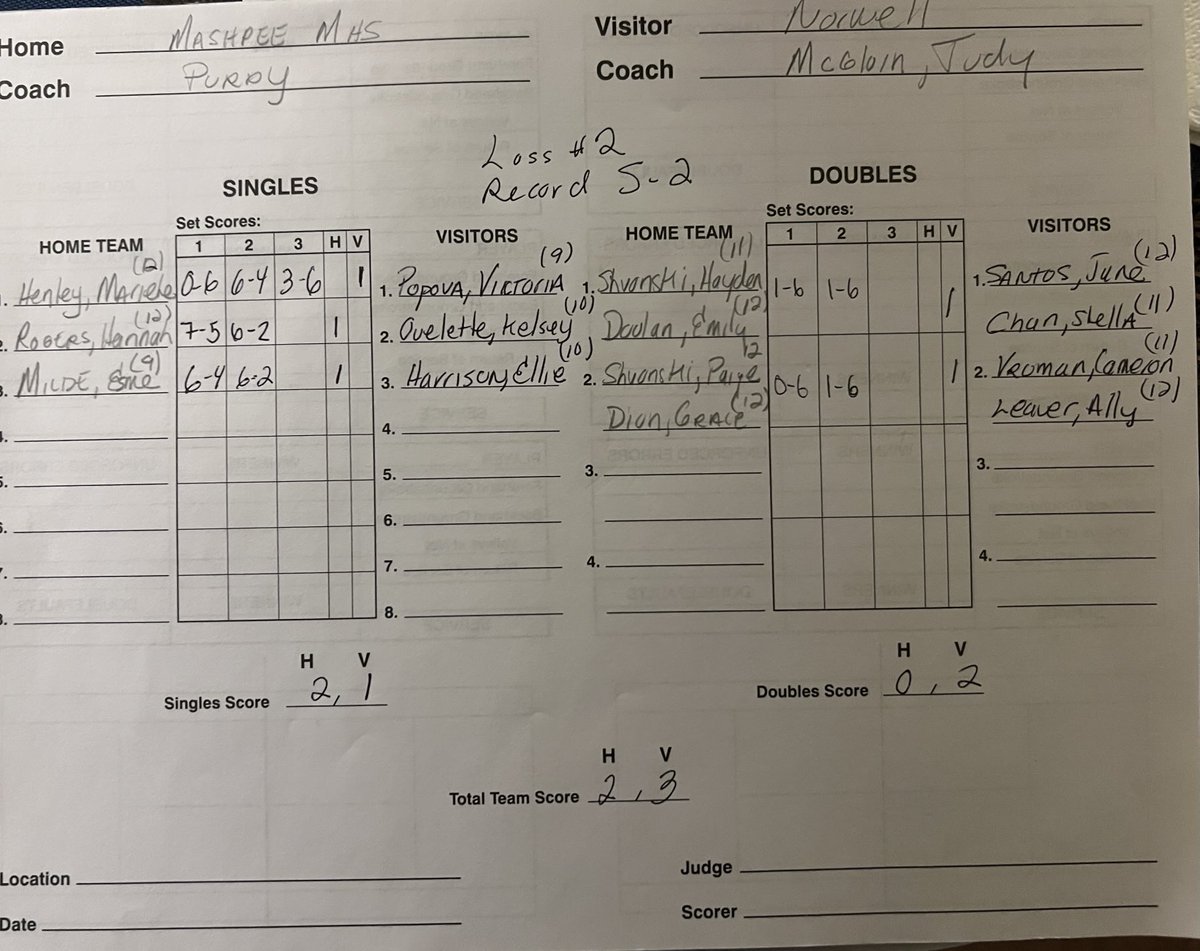 Home MASHPEE MHS
Coach PURDY
Visitor Norwell
Coach McGloin, Judy
Loss #2
Record 5-2
SINGLES
Set Scores:
HOME TEAM 1 2 3 H V VISITORS
Henley, (12) 0-6 6-4 3-6 1 1. POPOVA, VICTORIA (9)
2. ROGERS, Hannah (12) 7-5 6-2 1 2. Ouelette, Kelsey (10)
3. MILDE, Esme (9) 6-4 6-2 1 3. Harrison, Ellie (10)
4. 4.
5. 5.
6. 6.
7. 7.
8. 8.
H V
Singles Score 2, 1
DOUBLES
Set Scores:
HOME TEAM 1 2 3 H V VISITORS
1. Shvonski, Hayden (11) 1-6 1-6 1 1. SANTOS, June (12)
Doolan, Emily (12) Chan, Stella (11)
2. Shvonski, Paige 12 0-6 1-6 1 2. Yeoman, Cameron (11)
Dion, GRACE (12) Leaver, Ally (12)
3. 3.
4. 4.
H V
Doubles Score 0, 2
H V
Total Team Score 2, 3
Location
Date
Judge
Scorer